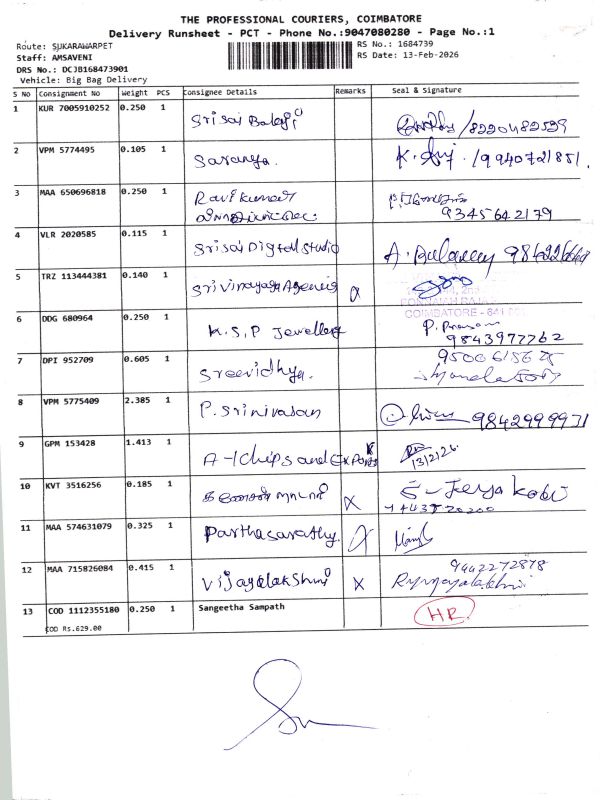 THE PROFESSIONAL COURIERS, COIMBATORE
Delivery Runsheet - PCT - Phone No.:9047080280 - Page No.:1
Route: SUKARAWARPET
RS No.: 1684739
Staff: AMSAVENI
RS Date: 13-Feb-2026
DRS No.: DCJB168473901
Vehicle: Big Bag Delivery
S No Consignment No Weight PCS Consignee Details Remarks Seal & Signature
1 KUR 7005910252 0.250 1 Srisai Balaji /8220482539
2 VPM 5774495 0.105 1 Saranya. /9940721851.
3 MAA 650696818 0.250 1 Ravikumar
9345642179
4 VLR 2020585 0.115 1 Srisai Digital Studio
5 TRZ 113444381 0.140 1 Sri Vinayaga Agencies
COIMBATORE - 641
6 DDG 680964 0.250 1 K.S.P Jewellery
9843977762
7 DPI 952709 0.605 1 Sreevidhya.
8 VPM 5775409 2.385 1 P. Srinivasan 9842999931
9 GPM 153428 1.413 1 A-1 chips and Exports
13/2/26.
10 KVT 3516256 0.185 1 x
11 MAA 574631079 0.325 1 Parthasarathy. x
12 MAA 715826084 0.415 1 Vijayalakshmi x 9442272878
13 COD 1112355180 0.250 1 Sangeetha Sampath HR
COD Rs.629.00